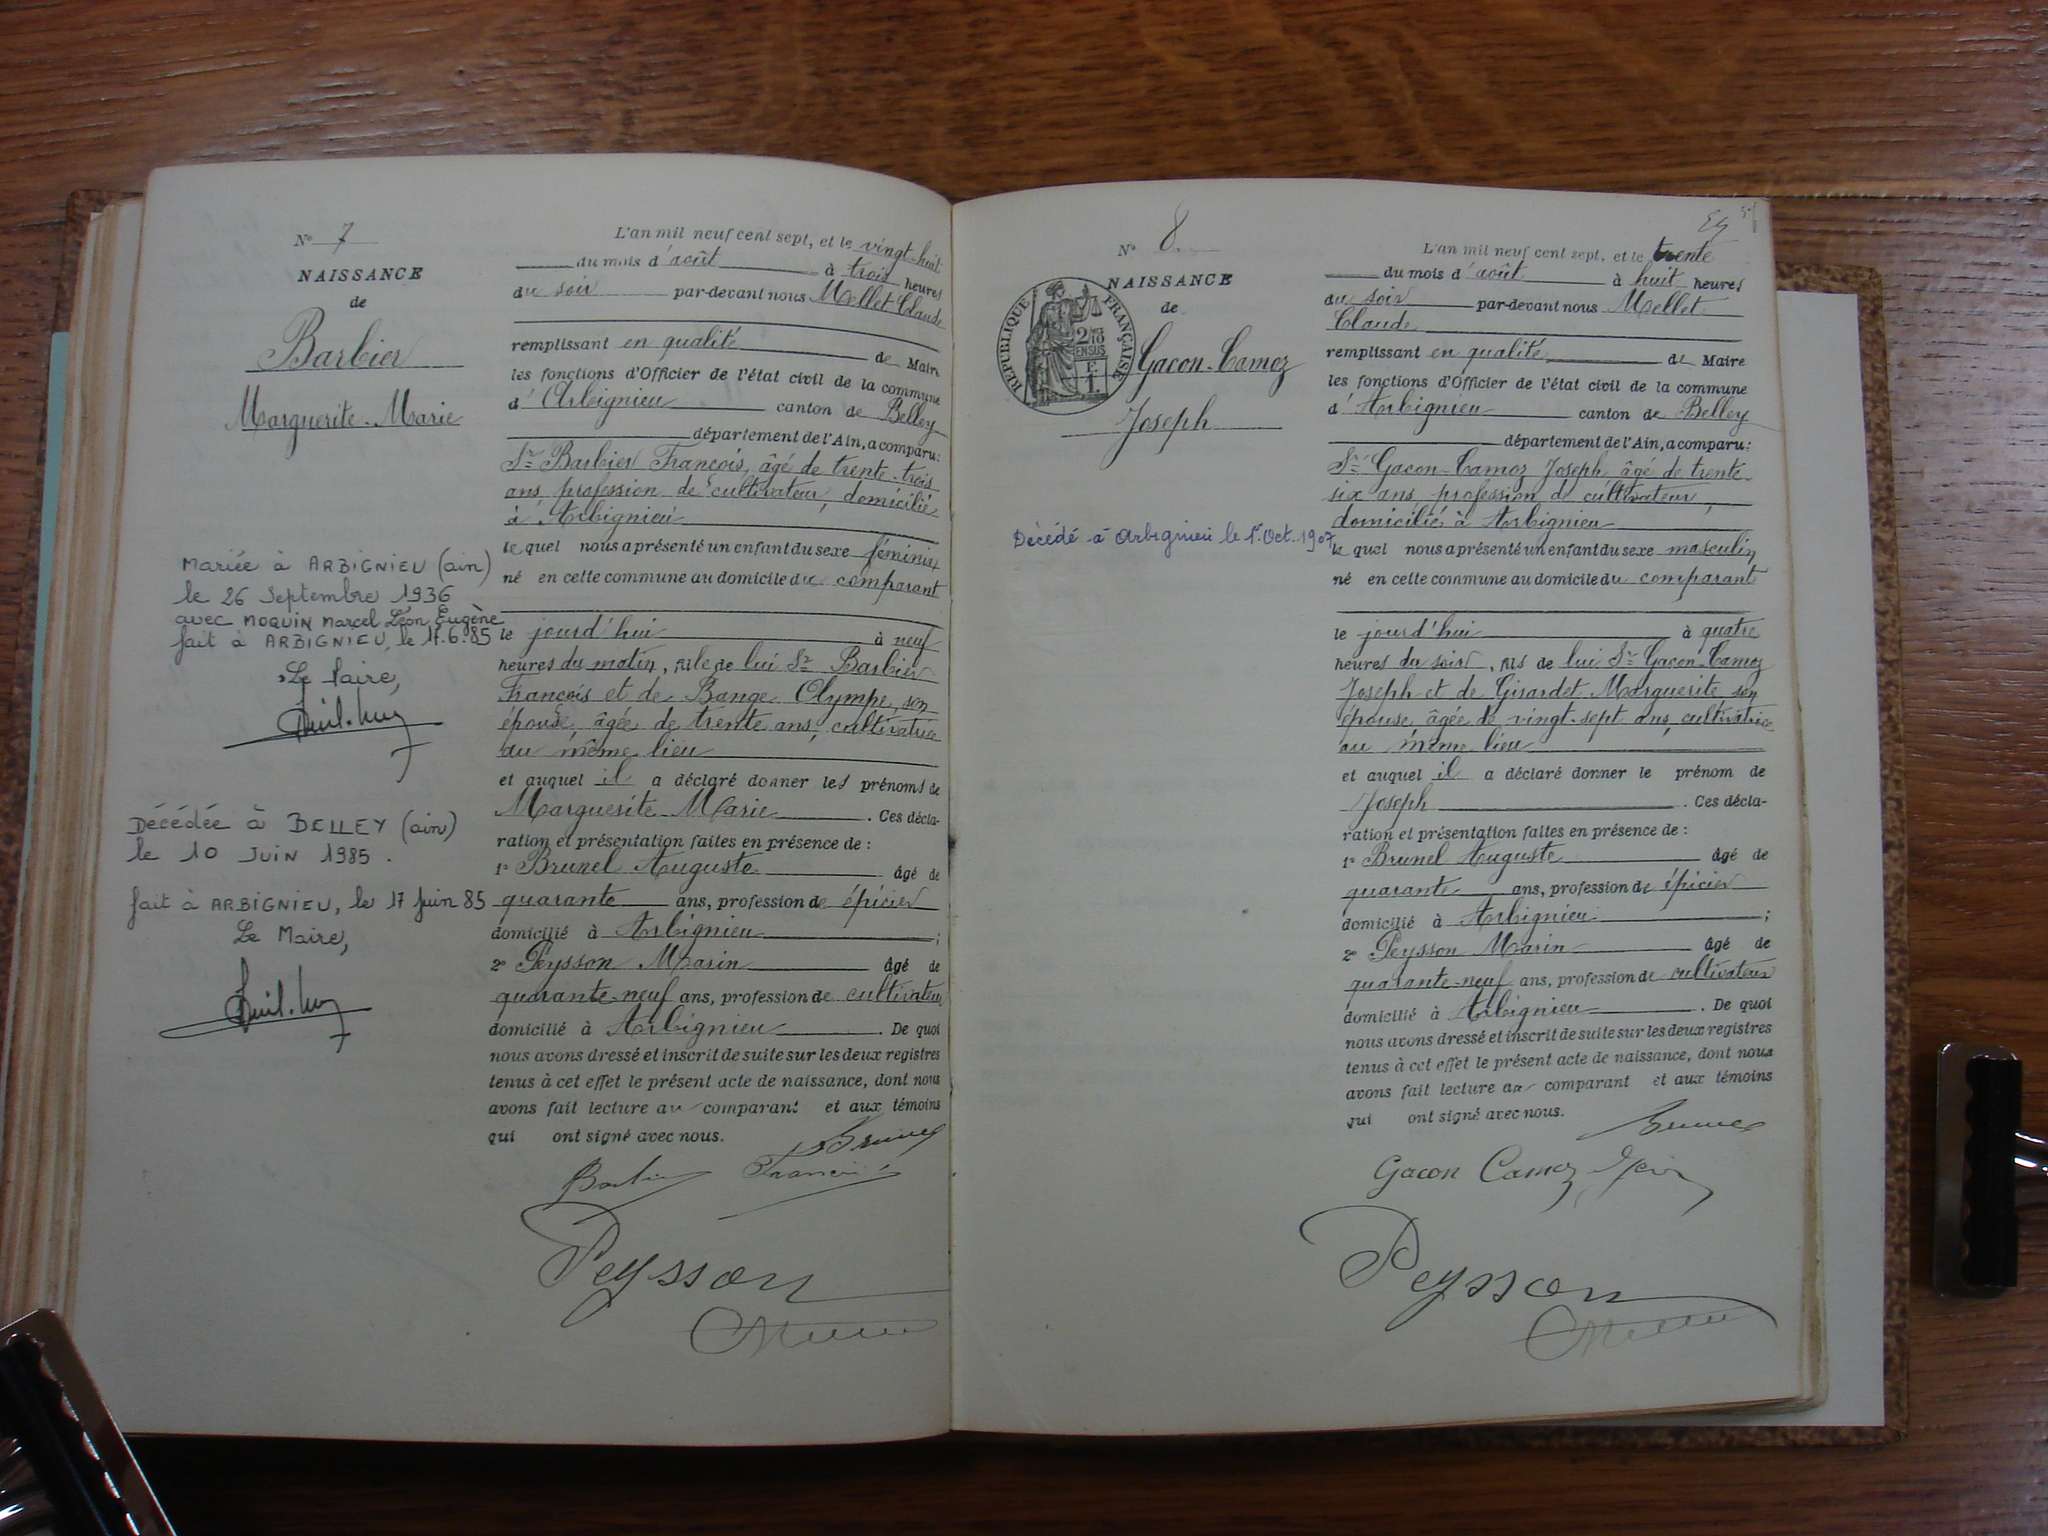 N° 7
NAISSANCE
de
Barbier
Marguerite-Marie
Mariée à ARBIGNIEU (ain)
le 26 Septembre 1936
avec MOQUIN Marcel Léon Eugène
fait à ARBIGNIEU, le 17.6.85
Le Maire,
Décédée à BELLEY (ain)
le 10 JUIN 1985.
fait à ARBIGNIEU, le 17 juin 85
Le Maire,
L'an mil neuf cent sept, et le vingt-huit
du mois d'août à trois heures
du soir par-devant nous Mellet Claude
remplissant en qualité de Maire
les fonctions d'Officier de l'état civil de la commune
d'Arbignieu canton de Belley
département de l'Ain, a comparu:
Sr Barbier François, âgé de trente-trois
ans, profession de cultivateur, domicilié
à Arbignieu
le quel nous a présenté un enfant du sexe féminin
né en cette commune au domicile du comparant
le jourd'hui à neuf
heures du matin, fille de lui Sr Barbier
François et de Bange Olympe, son
épouse, âgée de trente ans, cultivatrice
au même lieu
et auquel il a déclaré donner les prénoms de
Marguerite Marie. Ces décla-
ration et présentation faites en présence de :
1° Brunel Auguste âgé de
quarante ans, profession de épicier
domicilié à Arbignieu;
2° Peysson Marin âgé de
quarante-neuf ans, profession de cultivateur
domicilié à Arbignieu. De quoi
nous avons dressé et inscrit de suite sur les deux registres
tenus à cet effet le présent acte de naissance, dont nous
avons fait lecture au comparant et aux témoins
qui ont signé avec nous.
Brunel
Barbier François
Peysson
Mellet
N° 8
NAISSANCE
de
RÉPUBLIQUE FRANÇAISE
2/10
EN SUS
1 F.
Gacon-Camoz
Joseph
Décédé à Arbignieu le 1er Oct. 1907
L'an mil neuf cent sept, et le trente
du mois d'août à huit heures
du soir par-devant nous Mellet
Claude
remplissant en qualité de Maire
les fonctions d'Officier de l'état civil de la commune
d'Arbignieu canton de Belley
département de l'Ain, a comparu:
Sr Gacon-Camoz Joseph, âgé de trente-
six ans, profession de cultivateur,
domicilié à Arbignieu
le quel nous a présenté un enfant du sexe masculin
né en cette commune au domicile du comparant
le jourd'hui à quatre
heures du soir, fils de lui Sr Gacon-Camoz
Joseph et de Girardet Marguerite son
épouse, âgée de vingt-sept ans, cultivatrice
au même lieu
et auquel il a déclaré donner le prénom de
Joseph. Ces décla-
ration et présentation faites en présence de :
1° Brunel Auguste âgé de
quarante ans, profession de épicier
domicilié à Arbignieu;
2° Peysson Marin âgé de
quarante-neuf ans, profession de cultivateur
domicilié à Arbignieu. De quoi
nous avons dressé et inscrit de suite sur les deux registres
tenus à cet effet le présent acte de naissance, dont nous
avons fait lecture au comparant et aux témoins
qui ont signé avec nous.
Brunel
Gacon Camoz
Peysson
Mellet